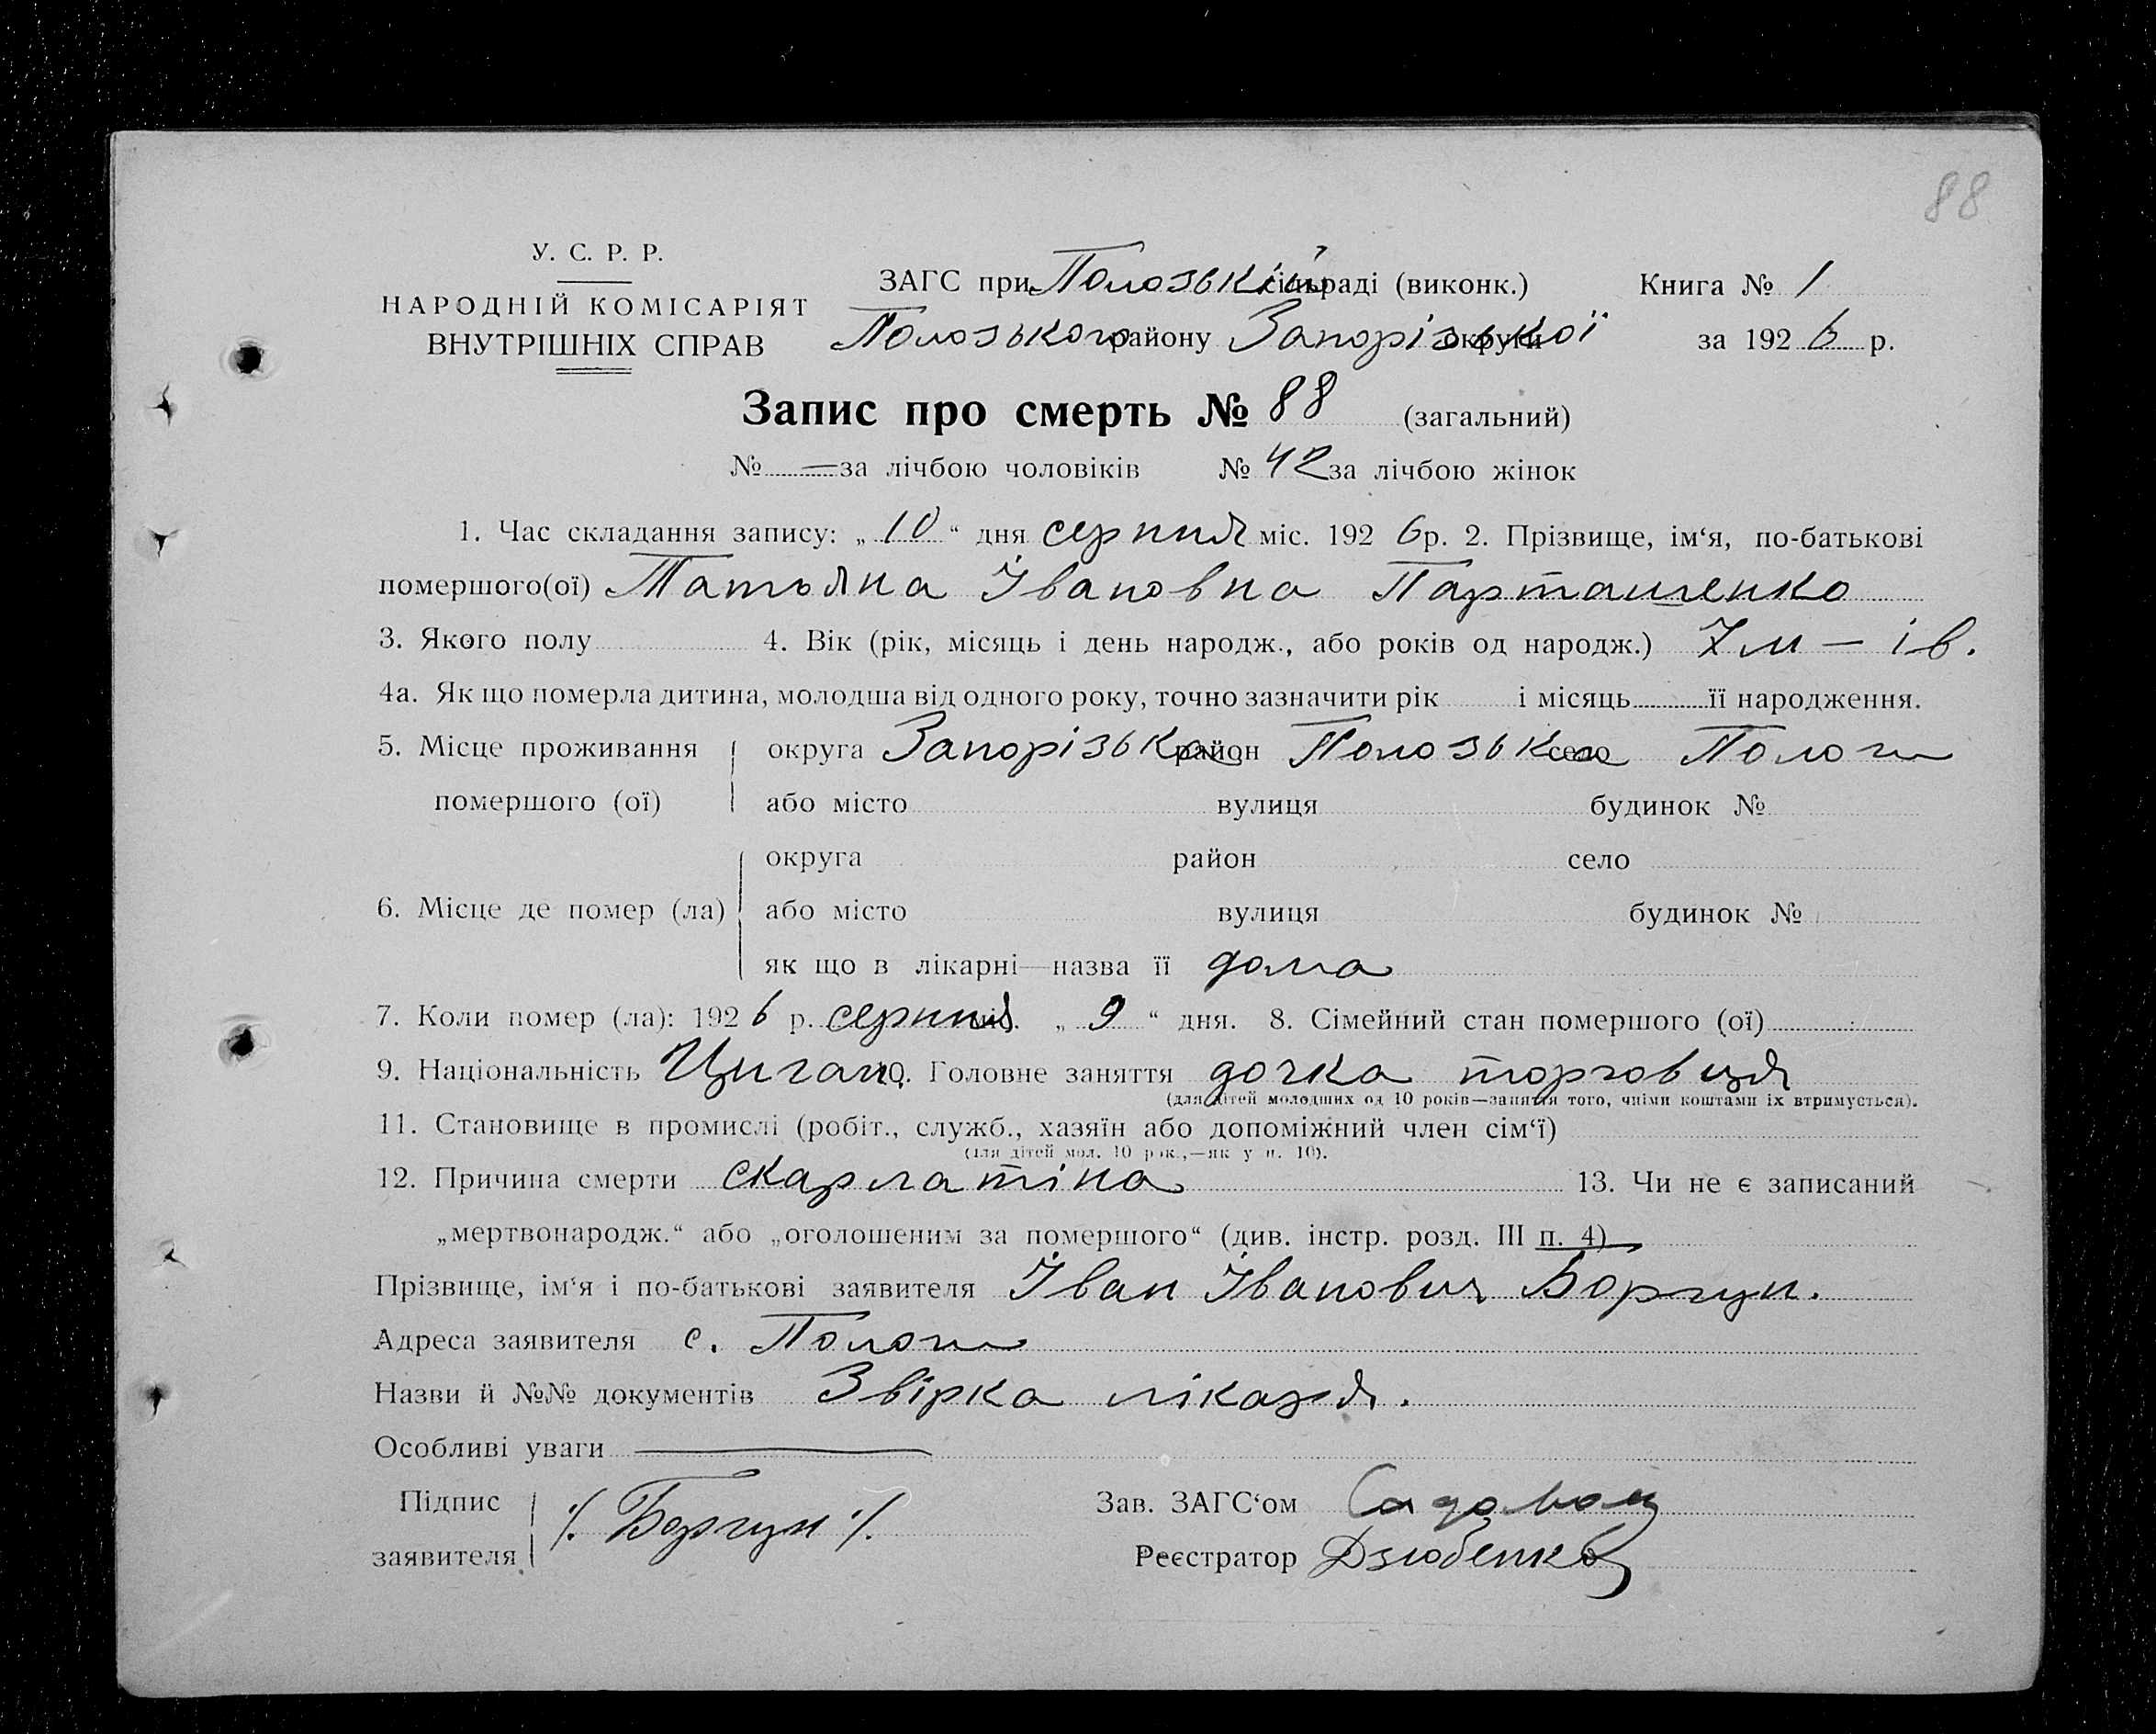 88
У. С. Р. Р.
НАРОДНІЙ КОМІСАРІЯТ
ВНУТРІШНІХ СПРАВ
ЗАГС при Полозькій сільраді (виконк.)
Книга № 1
Полозького району Запорізької округи
за 1926 р.
Запис про смерть № 88 (загальний)
№ — за лічбою чоловіків № 42 за лічбою жінок
1. Час складання запису: „10“ дня серпня міс. 1926 р. 2. Прізвище, ім‘я, по-батькові
помершого(ої) Татьяна Івановна Парташенко
3. Якого полу 4. Вік (рік, місяць і день народж., або років од народж.) 7 м — ів.
4а. Як що померла дитина, молодша від одного року, точно зазначити рік і місяць її народження.
5. Місце проживання округа Запорізька район Полозька село Пологи
помершого (ої) або місто вулиця будинок №
округа район село
6. Місце де помер (ла) або місто вулиця будинок №
як що в лікарні—назва її дома
7. Коли помер (ла): 1926 р. серпня міс. „9“ дня. 8. Сімейний стан помершого (ої)
9. Національність Циган 10. Головне заняття дочка торговця
(для дітей молодших од 10 років—заняття того, чиїми коштами їх втримується).
11. Становище в промислі (робіт., служб., хазяїн або допоміжний член сім‘ї)
(для дітей мол. 10 рок.,—як у п. 10).
12. Причина смерти скарлатіна 13. Чи не є записаний
„мертвонародж.“ або „оголошеним за помершого“ (див. інстр. розд. III п. 4)
Прізвище, ім‘я і по-батькові заявителя Іван Іванович Боргун.
Адреса заявителя с. Пологи
Назви й №№ документів Звірка лікаря.
Особливі уваги —
Підпис
заявителя ٪ Боргун ٪
Зав. ЗАГС‘ом
Реєстратор Дзюбенко